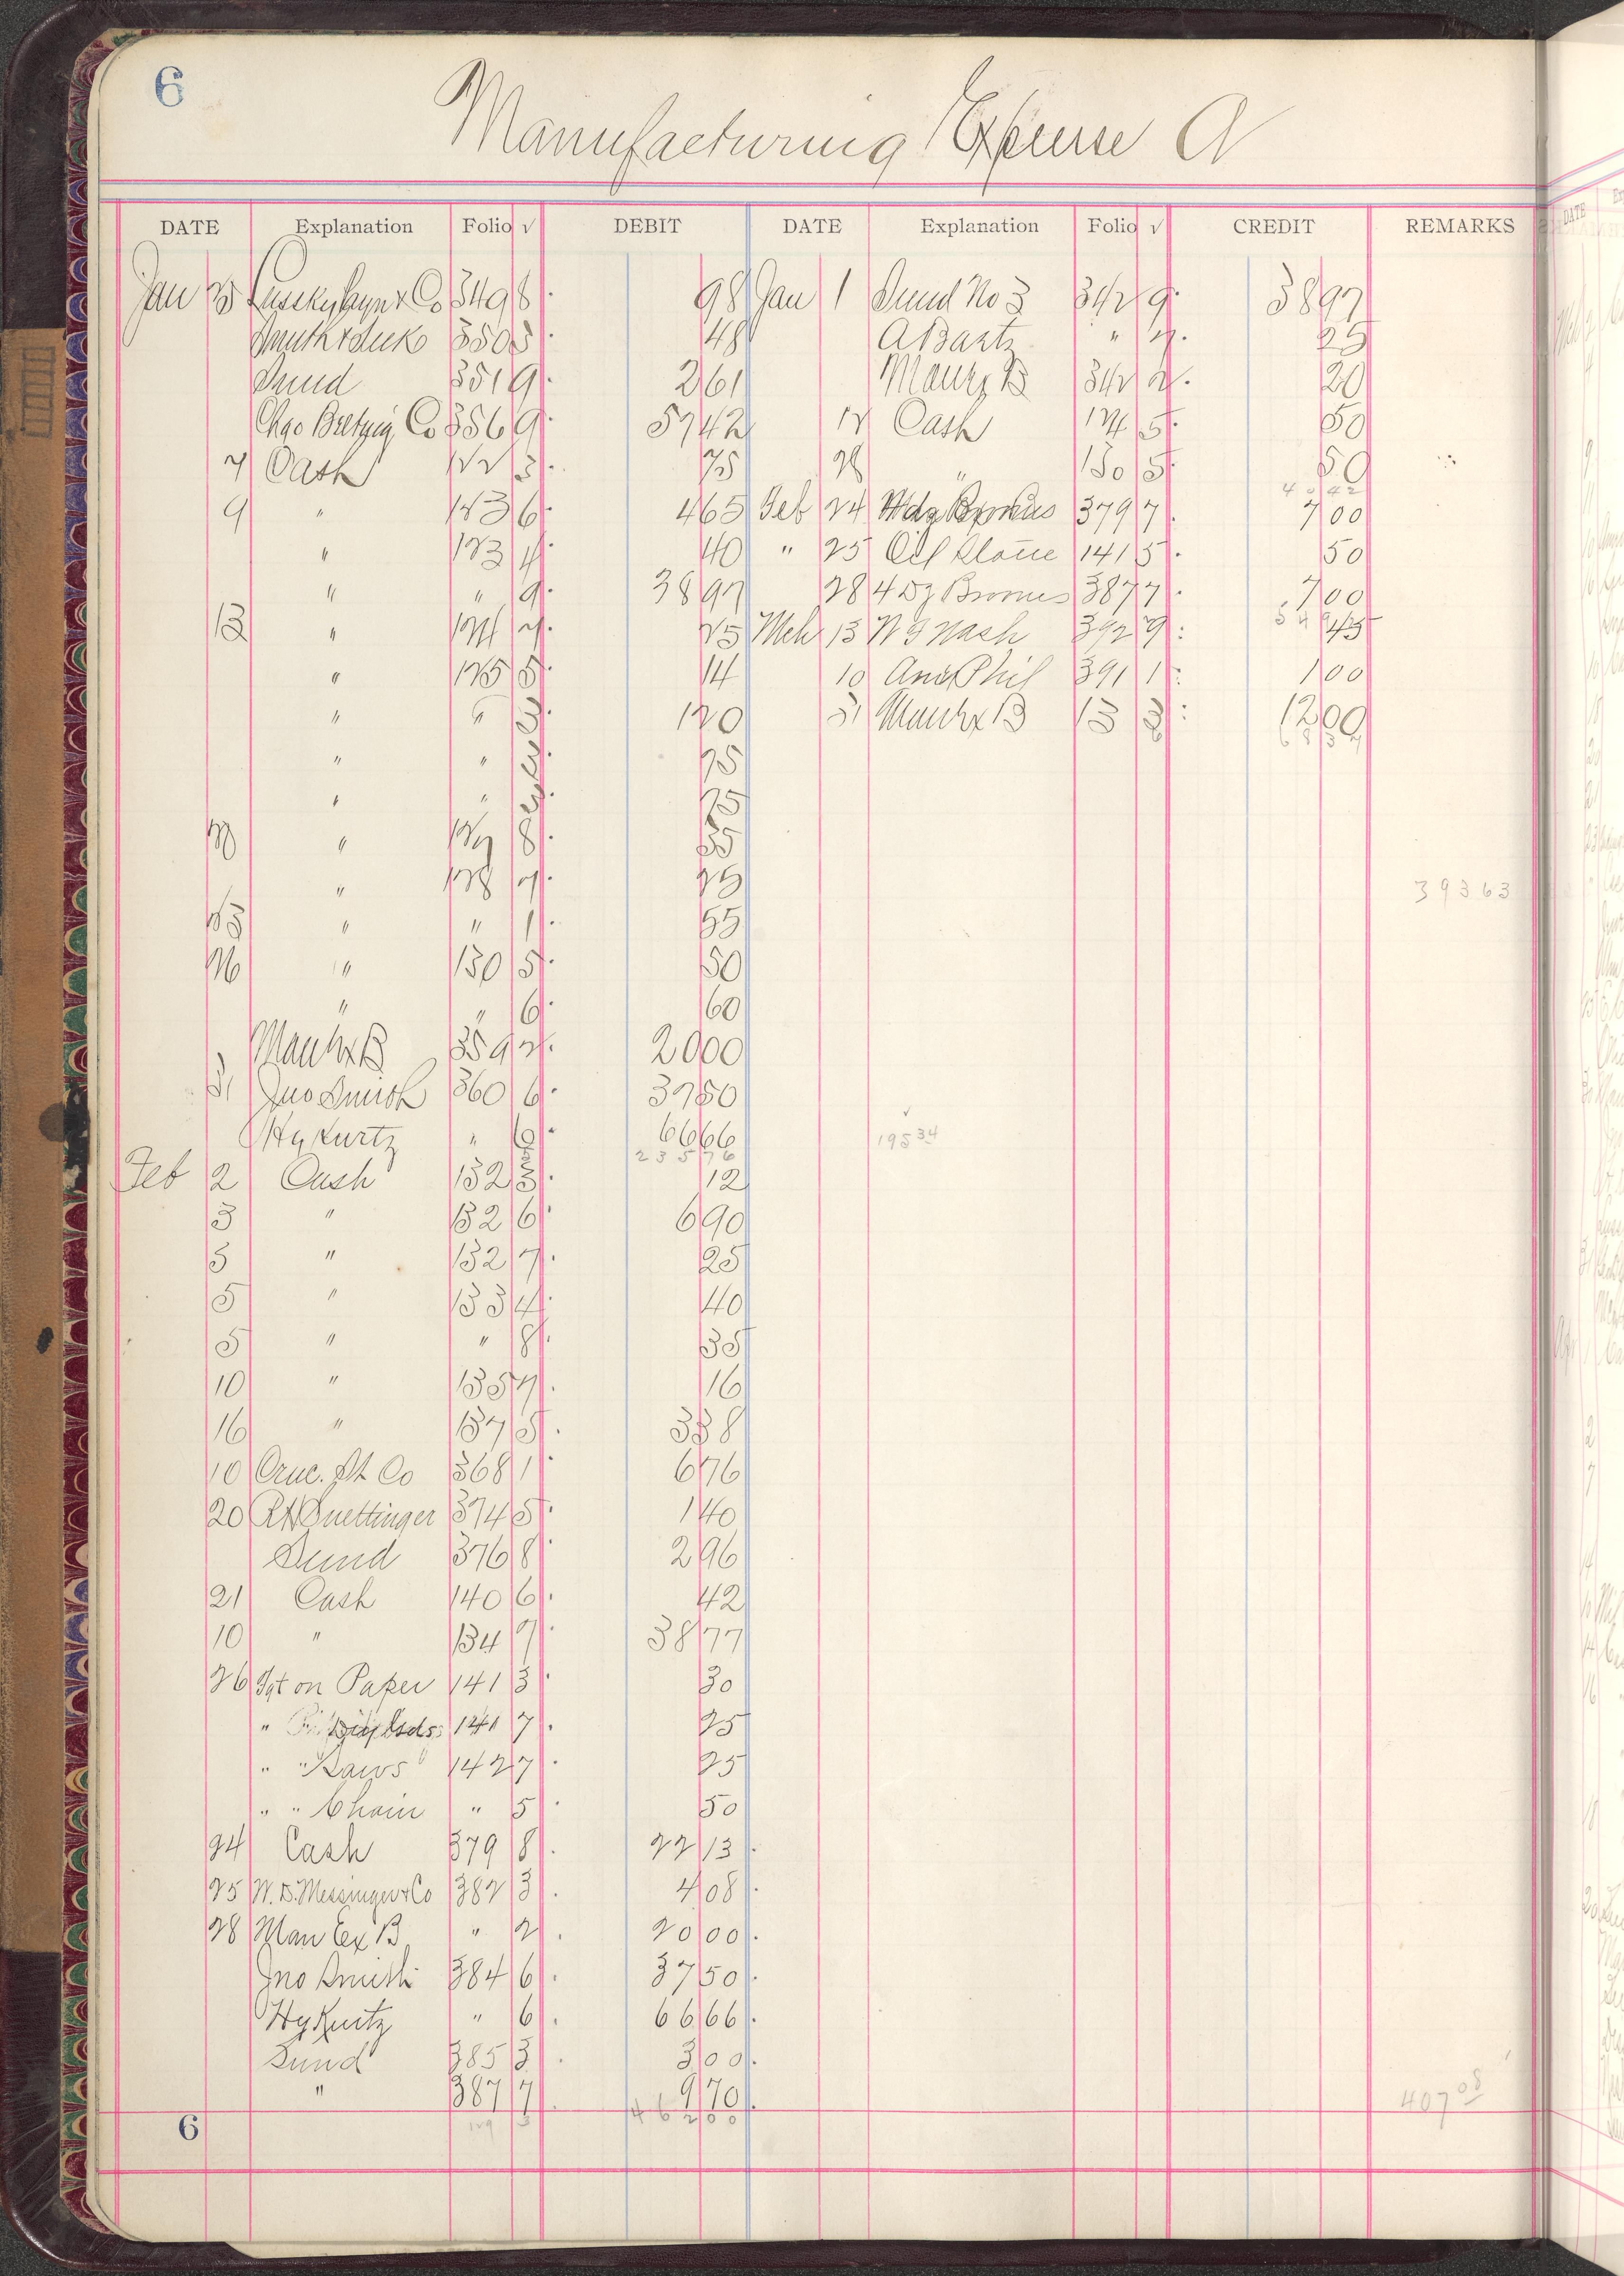 6
Manufacturing Expense A
DATE Explanation Folio √ DEBIT DATE Explanation Folio √ CREDIT REMARKS
Jan & Co 349 8 98 Jan 1 Sund No 3 342 9 38 97
350 5 48 A Bartz " 7 25
Sund 351 9 2 61 Man Ex B 342 2 20
Chas Co 356 9 57 42 12 Cash 124 5 50
7 Cash 122 3 75 28 " 130 5 50
40 42
9 " 123 6 4 65 Feb 24 379 7 7 00
" 123 4 40 " 25 Oil Stone 141 5 50
" " 9 38 97 28 4 Dz Brooms 387 7 7 00
54 92
13 " 124 7 25 Mch 13 Nash 392 9 45
" 125 5 14 10 Am Phil 391 1 1 00
" " 3 1 20 31 Man Ex B 13 3 12 00
68 37
" " 3 75
" " 3 75
20 " 127 8 35
" 128 7 25
393 63
23 " " 1 55
26 " 130 5 50
" " 6 60
Man Ex B 359 2 20 00
31 Jno Smith 360 6 37 50
Hy Kurtz " 6 66 66
195 34
235 76
Feb 2 Cash 132 3 12
3 " 132 6 6 90
3 " 132 7 25
5 " 133 4 40
5 " " 8 35
10 " 135 7 16
16 " 137 5 3 38
10 Cruc. St Co 368 1 6 76
20 R H Suettinger 374 5 1 40
Sund 376 8 2 96
21 Cash 140 6 42
10 " 134 7 38 77
26 Fgt on Paper 141 3 30
" 141 7 25
" " Saws " 142 7 25
" " Chain " 5 50
24 Cash 379 8 22 13
25 W. D. Messinger & Co 382 3 4 08
28 Man Ex B " 2 20 00
Jno Smith 384 6 37 50
Hy Kurtz " 6 66 66
Sund 385 3 3 00
" 387 7 9 70
407 08
6 129 3 462 00